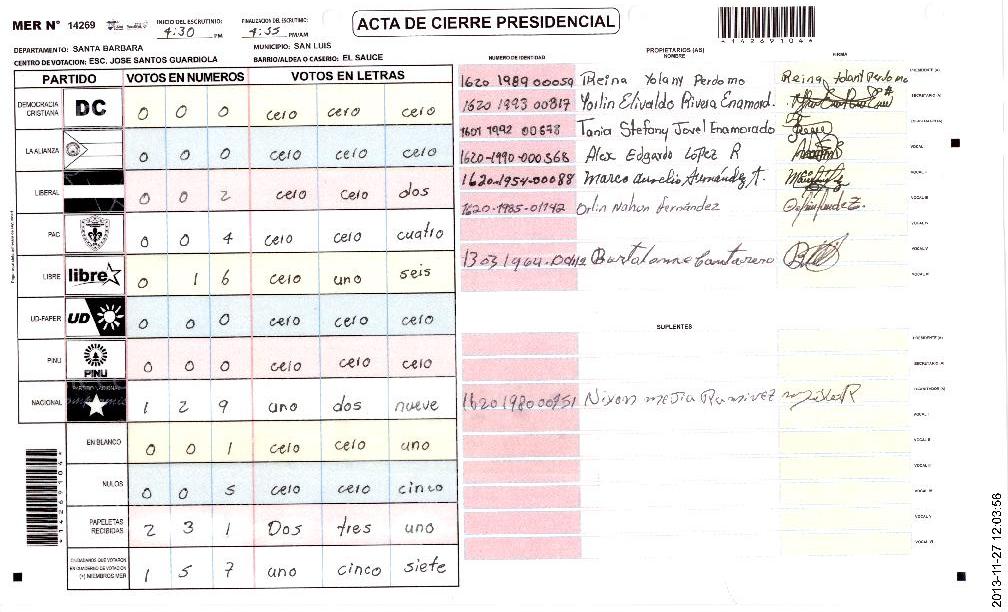 MER N° 14269
INICIO DEL ESCRUTINIO:
4:30 PM
FINALIZACION DEL ESCRUTINIO:
4:55 PM/AM
ACTA DE CIERRE PRESIDENCIAL
*14269104*
DEPARTAMENTO: SANTA BARBARA
MUNICIPIO: SAN LUIS
CENTRO DE VOTACION: ESC. JOSE SANTOS GUARDIOLA
BARRIO/ALDEA O CASERIO: EL SAUCE
PARTIDO VOTOS EN NUMEROS VOTOS EN LETRAS
DEMOCRACIA CRISTIANA DC 0 0 0 cero cero cero
LA ALIANZA 0 0 0 cero cero cero
LIBERAL 0 0 2 cero cero dos
PAC 0 0 4 cero cero cuatro
LIBRE libre 0 1 6 cero uno seis
UD-FAPER UD 0 0 0 cero cero cero
PINU PINU 0 0 0 cero cero cero
NACIONAL 1 2 9 uno dos nueve
EN BLANCO 0 0 1 cero cero uno
NULOS 0 0 5 cero cero cinco
PAPELETAS RECIBIDAS 2 3 1 Dos tres uno
CIUDADANOS QUE VOTARON EN CUADERNO DE VOTACION (+) MIEMBROS MER 1 5 7 uno cinco siete
*14269104*
PROPIETARIOS (AS)
NUMERO DE IDENTIDAD NOMBRE FIRMA
1620 1989 00059 Reina Yolany Perdomo Reina Yolani Perdomo PRESIDENTE (A)
1620 1993 00817 Yorlin Elivaldo Rivera Enamord. SECRETARIO (A)
1601 1992 00678 Tania Stefany Jovel Enamorado ESCRUTADOR (A)
1620-1990-000368 Alex Edgardo Lopez R VOCAL I
1620-1954-00088 Marco Aurelio Hernández VOCAL II
1620-1985-01742 Orlin Nahun Fernández VOCAL III
VOCAL IV
13031964 Bartolome Cantarero VOCAL V
VOCAL VI
SUPLENTES
PRESIDENTE (A)
SECRETARIO (A)
ESCRUTADOR (A)
1620198000951 Nixon mejia Ramirez VOCAL I
VOCAL II
VOCAL III
VOCAL IV
VOCAL V
VOCAL VI
2013-11-27 12:03:56